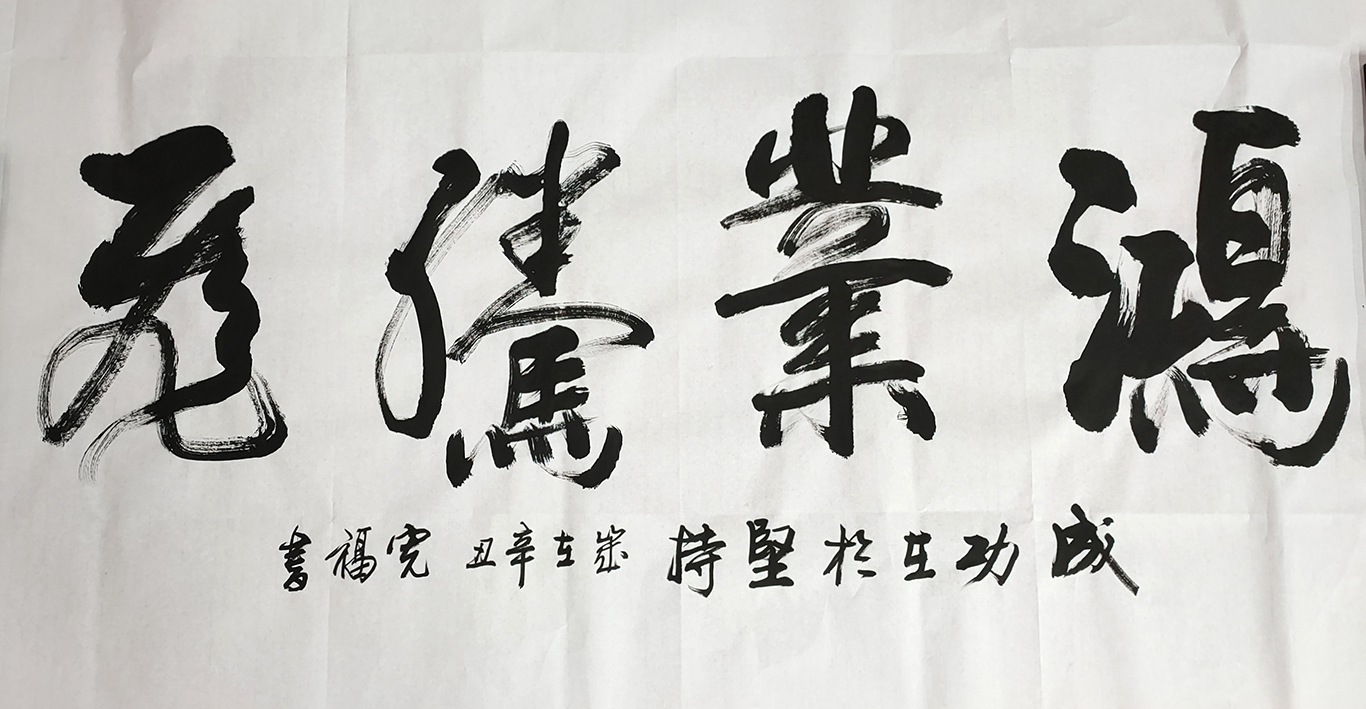 鴻業騰飛
成功在於堅持 歲在辛丑 憲福書